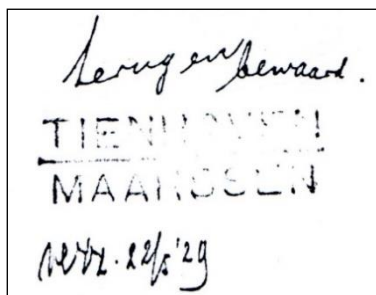 terug en bewaard.
TIENHOVEN
MAARSSEN
verz. 22/5 '29